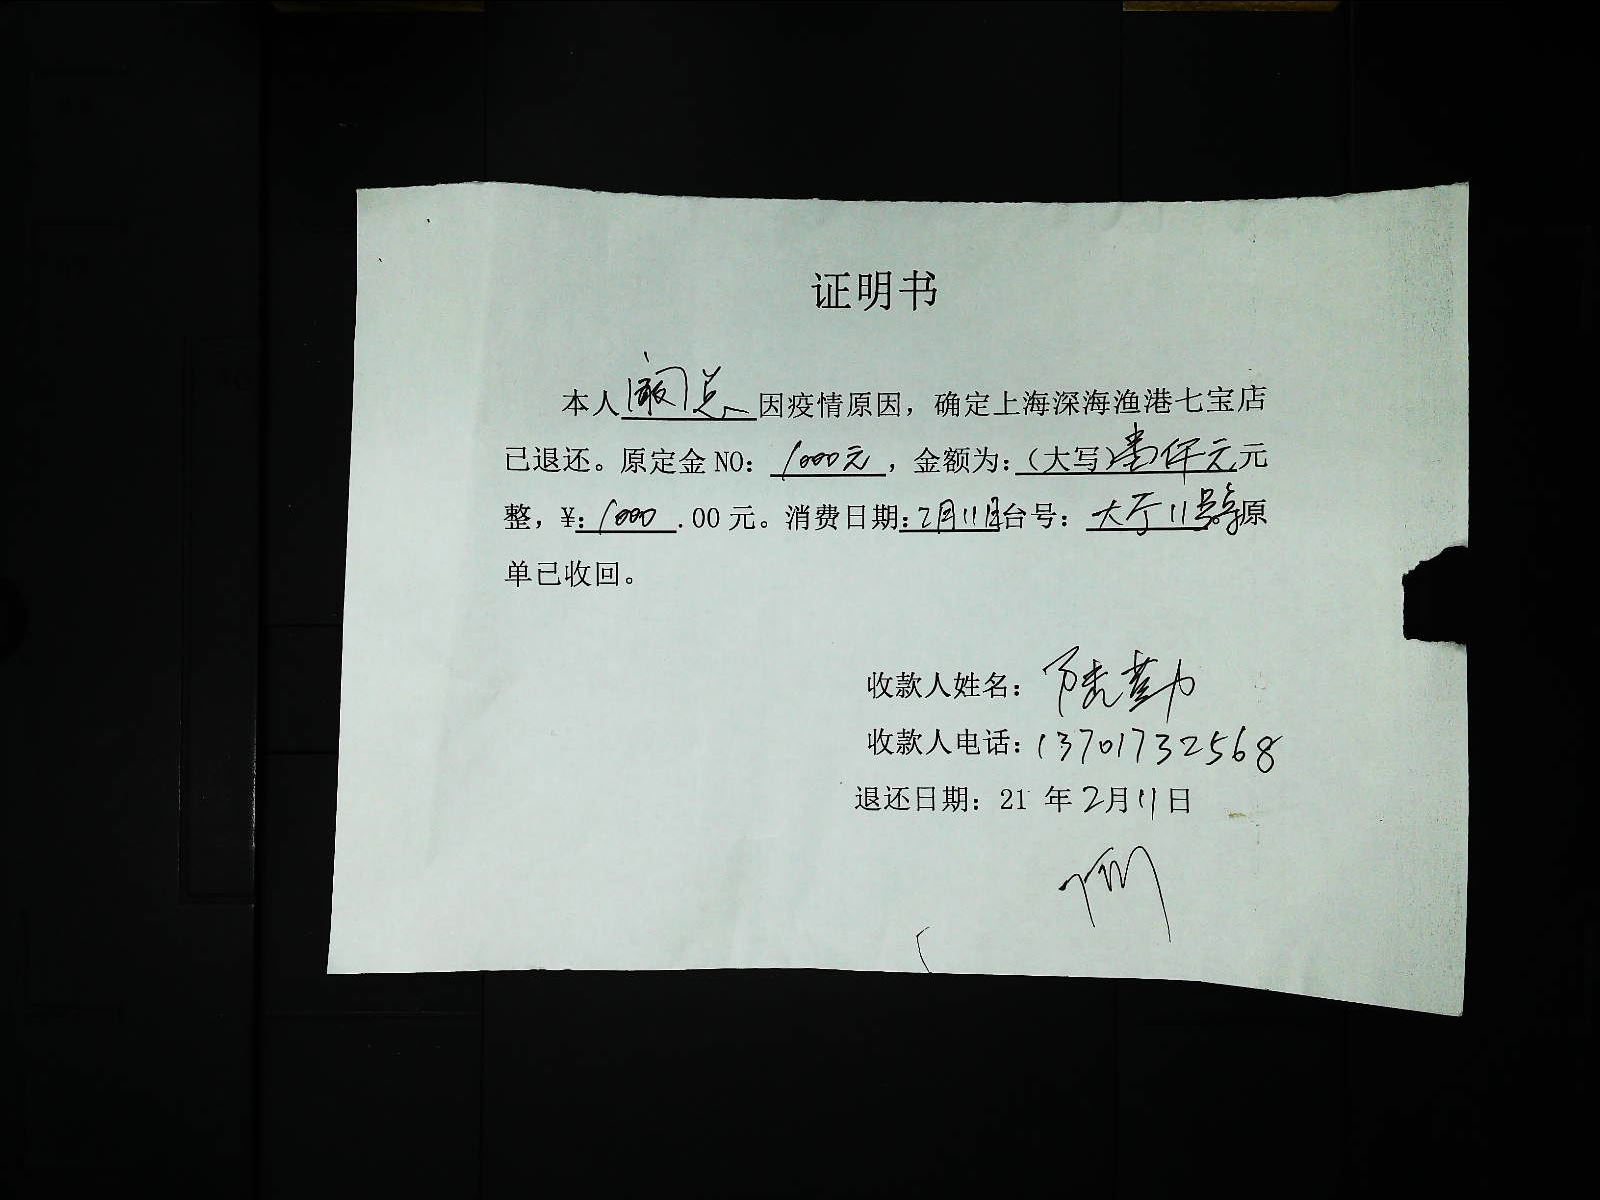 证明书
本人阚总因疫情原因，确定上海深海渔港七宝店
已退还。原定金NO：1000元，金额为：（大写）壹仟元元
整，¥：1000.00元。消费日期：2月11日台号：大厅11号桌原
单已收回。
收款人姓名：陆勤
收款人电话：13701732568
退还日期：21 年2月11日